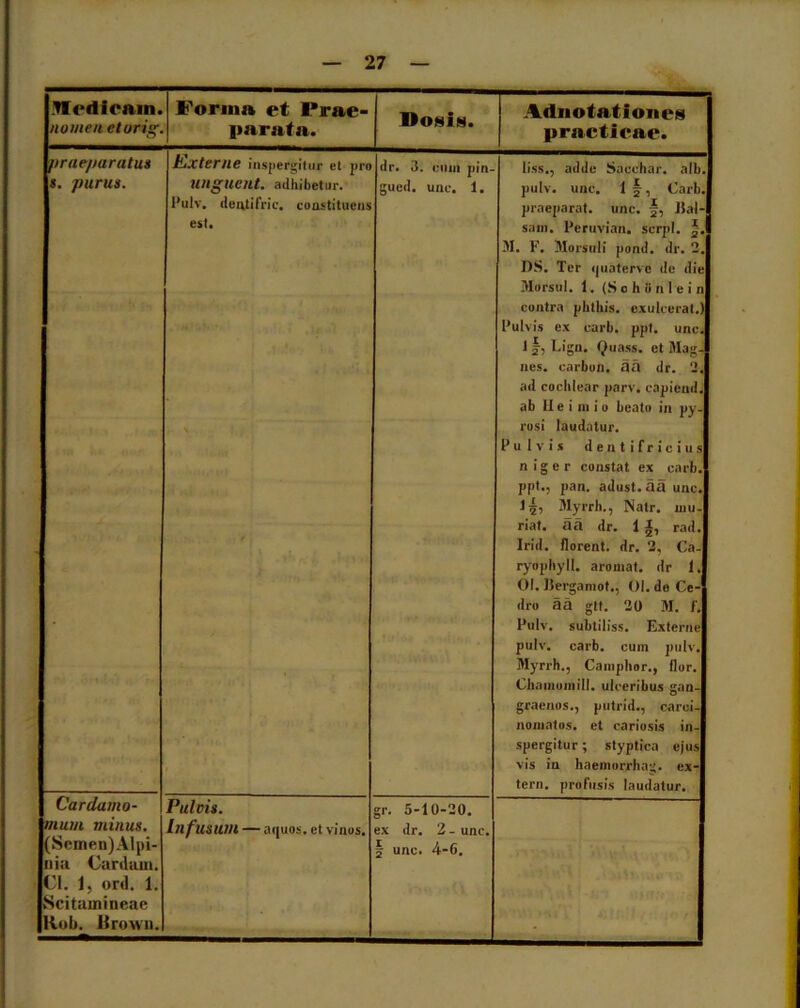 — 27 —
Medicam.
nomen et orig.
Forma et Prae-
parata.
Dosis.
Adnotationes
practicae.
praeparatus
s. purus.
Externe inspergitur et pro
unguent. adhibetur.
Pulv. dentifric. constituens
est.
dr. 3. cum pin-
gued. unc. 1.
liss., adde Sacchar. alb.
pulv. unc. 1 ½, Carb.
praeparat. unc. ½, Bal-
sam. Peruvian. scrpl. ½.
M. F. Morsuli pond. dr. 2.
DS. Ter quaterve de die
Morsul. 1. (Schönlein
contra phthis. exulcerat.)
Pulvis ex carb. ppt. unc.
1½, Lign. Quass. et Mag-
nes. carbon. āā dr. 2.
ad cochlear parv. capiend.
ab Heimio beato in py-
rosi laudatur.
Pulvis dentifricius
niger constat ex carb.
ppt., pan. adust. āā unc.
1½, Myrrh., Natr. mu-
riat. āā dr. 1½, rad.
Irid. florent. dr. 2, Ca-
ryophyll. aromat. dr 1.
Ol. Bergamot., Ol. de Ce-
dro āā gtt. 20 M. f.
Pulv. subtiliss. Externe
pulv. carb. cum pulv.
Myrrh., Camphor., flor.
Chamomill. ulceribus gan-
graenos., putrid., carci-
nomatos. et cariosis in-
spergitur; styptica ejus
vis in haemorrhag. ex-
tern. profusis laudatur.
Cardamo-
mum minus.
(Semen) Alpi-
nia Cardam.
Cl. 1, ord. 1.
Scitamineae
Rob. Brown.
Pulvis.
Infusum — aquos. et vinos.
gr. 5-10-20.
ex dr. 2 - unc.
½ unc. 4-6.